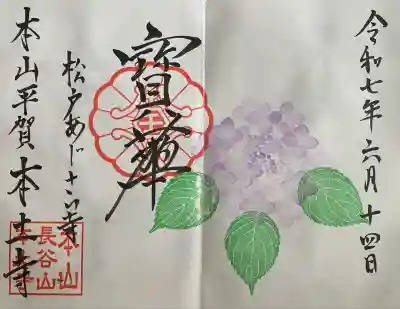 令和七年六月十四日
寳華
松戸あじさい寺
本山平賀本土寺
本山
長谷山